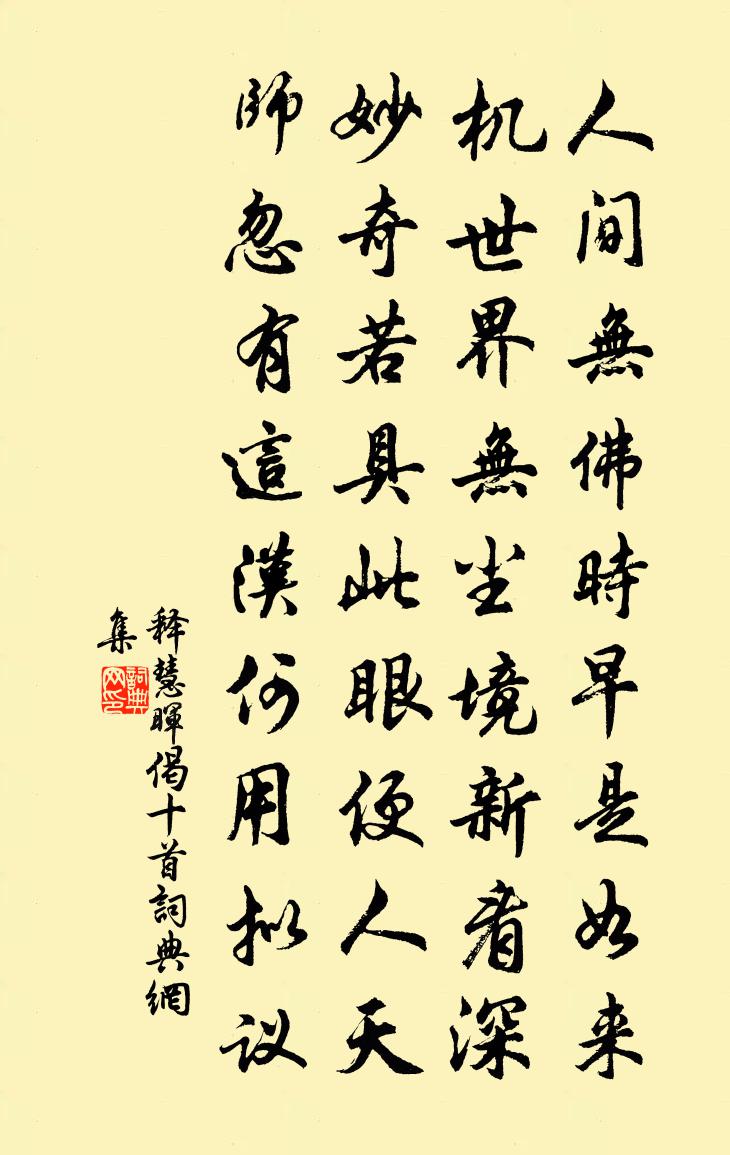 人间無佛時早是如来
机世界無尘境新看深
妙奇若具此眼便人天
師忽有這漢何用拟议
释慧暉偈十首詞典網
集
詞典
网印